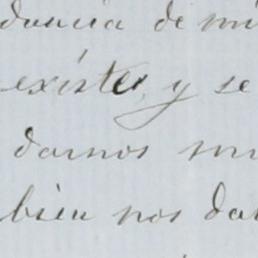 dancia de mi
existen, y se
darnos su
bien nos da